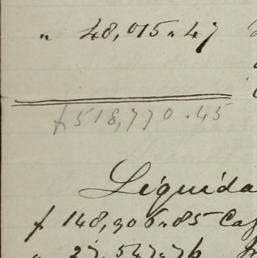 " 48,015.47
f 518,770.45
Liquida
f 148,906.85 Caf
" 27,547.76